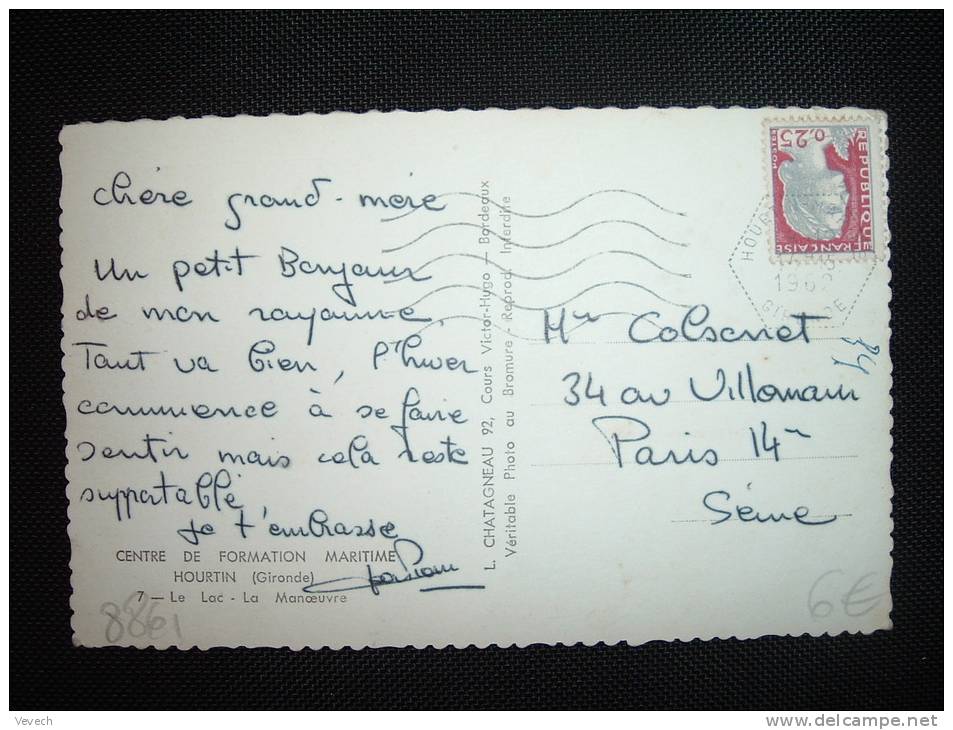 chère grand-mère
Un petit Bonjour
de mon royaume
Tout va bien, l'hiver
commence à se faire
sentir mais cela reste
supportable
je t'embrasse
CENTRE DE FORMATION MARITIME
HOURTIN (Gironde)
7 — Le Lac - La Manœuvre
8861
L. CHATAGNEAU 92, Cours Victor-Hugo — Bordeaux
Véritable Photo au Bromure - Reprod. Interdite
REPUBLIQUE
FRANÇAISE
0,25
HOUR
1962
GIRONDE
Mme Colsenet
34 av Villemain
Paris 14
Seine
84
6€
Vevech
www.delcampe.net